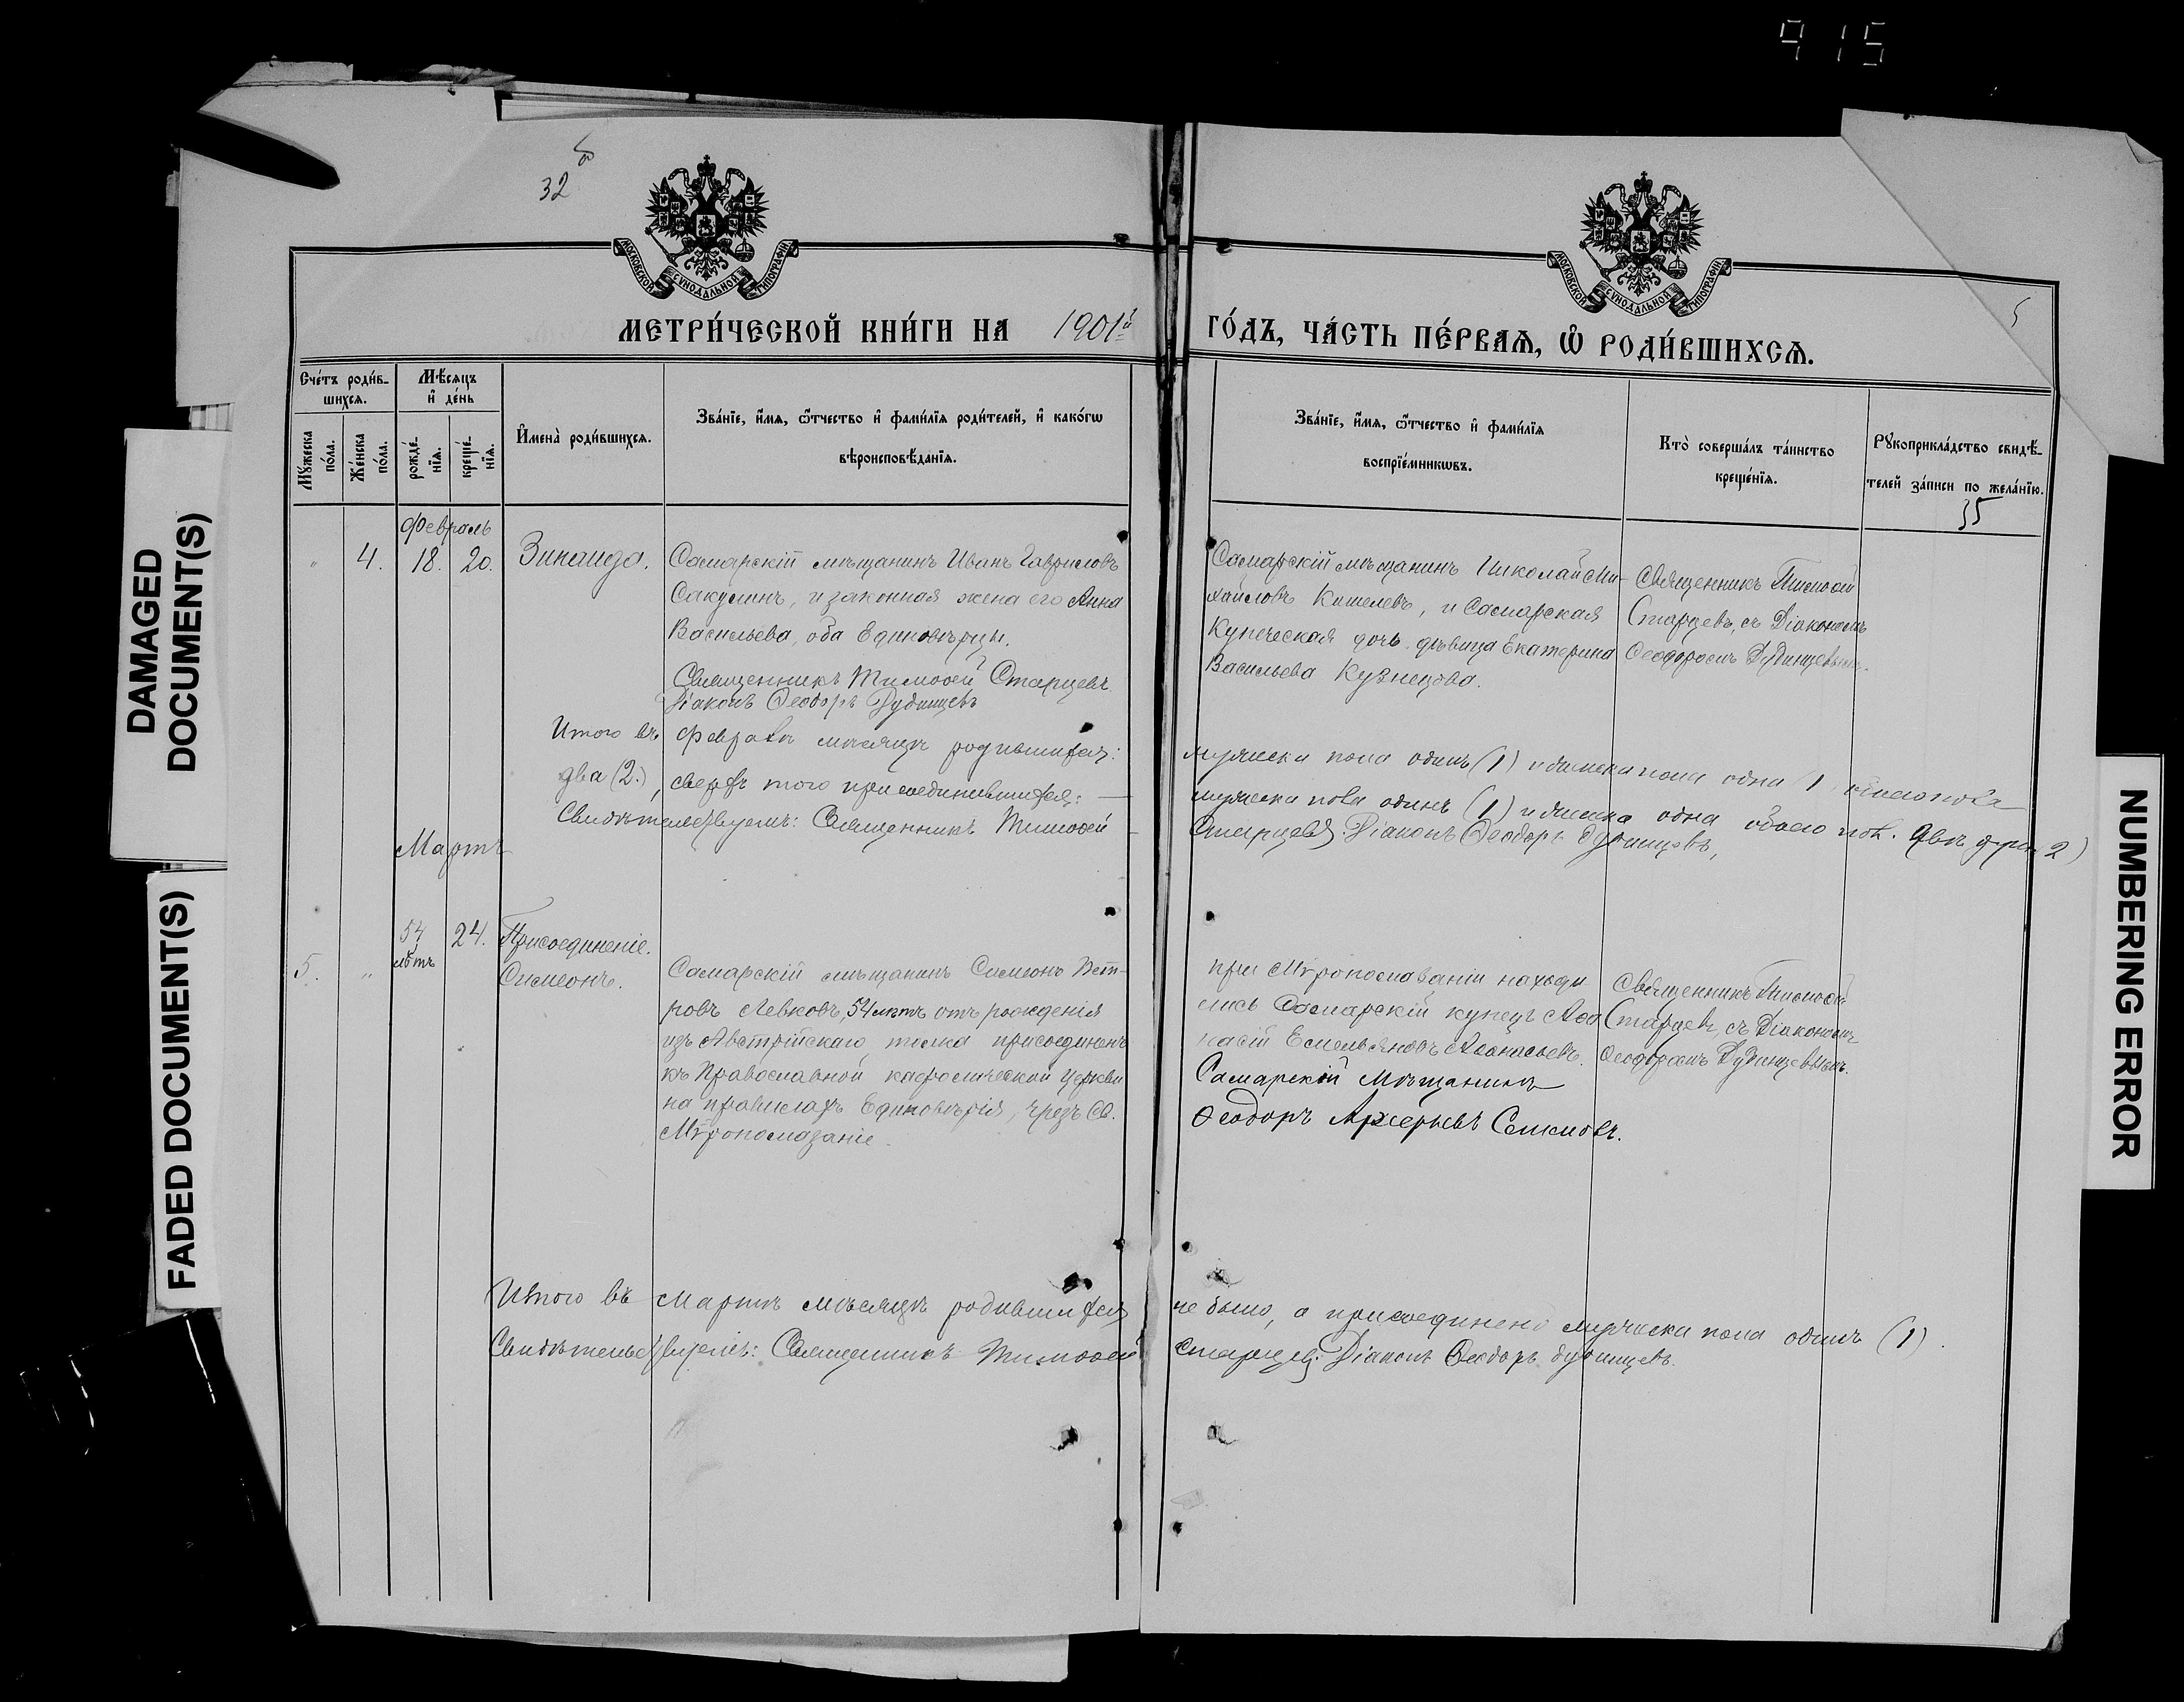 915
32
5
МОСКОВСКОЙ СѴНОДАЛЬНОЙ ТИПОГРАФІИ
МОСКОВСКОЙ СѴНОДАЛЬНОЙ ТИПОГРАФІИ
МЕТРИ́ЧЕСКОЙ КНИ́ГИ НА 1901й
ГО́ДЪ, ЧА́СТЬ ПЕ́РВАѦ, Ѽ РОДИ́ВШИХСѦ.
Сче́тъ роди́в-
шихся.
Мѣ́сяцъ
и҆ де́нь
Мꙋ́жеска
по́ла.
Же́нска
по́ла.
рожде́-
нїя.
креще́-
нїя.
И҆мена̀ роди́вшихся.
Зва́нїе, и҆́мя, ѻ҆́тчество и҆ фами́лїя роди́телей, и҆ како́гѡ
вѣроисповѣ́данїя.
Зва́нїе, и҆́мя, ѻ҆́тчество и҆ фами́лїя
воспрїе́мникѡвъ.
Кто̀ соверша́лъ та́инство
креще́нїя.
Рꙋкоприкла́дство свидѣ́-
телей за́писи по жела́нїю.
35
Февраль
" 4. 18. 20. Зинаида.
Самарскій мѣщанинъ Иванъ Гавриловъ
Сакулинъ, и законная жена его Анна
Васильева, оба Единовѣрцы.
Священникъ Тимоѳей Старцевъ
Діаконъ Ѳеодоръ Дудинцевъ
Самарскій мѣщанинъ Николай Ми-
хайловъ Кишелевъ, и Самарская
Купеческая дочь дѣвица Екатерина
Васильева Кузнецова.
Священникъ Тимоѳей
Старцевъ, съ Діакономъ
Ѳеодоромъ Дудинцевымъ.
Итого въ Февралѣ мѣсяцѣ родившихся: мужеска пола одинъ (1) и женска пола одна (1
два (2.), сверхъ того присоединившихся: — мужеска пола одинъ (1) и женска одна обоего пол. два 2)
Свидѣтельствуемъ: Священникъ Тимоѳей Старцевъ Діаконъ Ѳеодоръ Дудинцевъ,
Мартъ
5. " 54 лѣтъ 24. Присоединеніе.
Симеонъ.
Самарскій мѣщанинъ Симеонъ Пет-
ровъ Левковъ, 54 лѣтъ отъ рожденія
изъ Австрійскаго толка присоединенъ
къ Православной каѳолической Церкви
на правилахъ Единовѣрія, чрезъ Св.
Мѵропомазаніе.
при Мѵропомазаніи находи
лись Самарскій купецъ Аѳа
насій Емельяновъ Аѳанасьевъ.
Самарскій Мѣщанинъ
Ѳеодоръ
Священникъ Тимоѳей
Старцевъ, съ Діакономъ
Ѳеодоромъ Дудинцевымъ.
Итого въ Мартѣ мѣсяцѣ родившихся не было, а присоединено мужеска пола одинъ (1).
Свидѣтельствуемъ: Священникъ Тимоѳей Старцевъ Діаконъ Ѳеодоръ Дудинцевъ.
DAMAGED
DOCUMENT(S)
FADED DOCUMENT(S)
NUMBERING ERROR